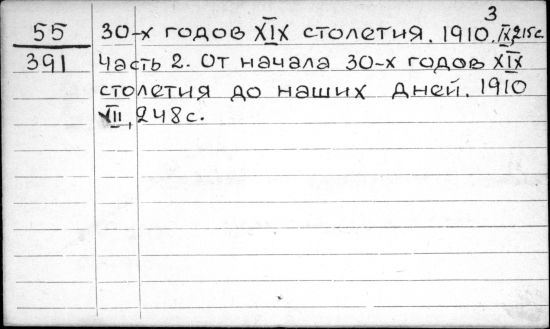 3
55 30-х годов XIX столетия. 1910. IX, 215с.
391 Часть 2. От начала 30-х годов XIX
столетия до наших дней. 1910
XII, 248с.